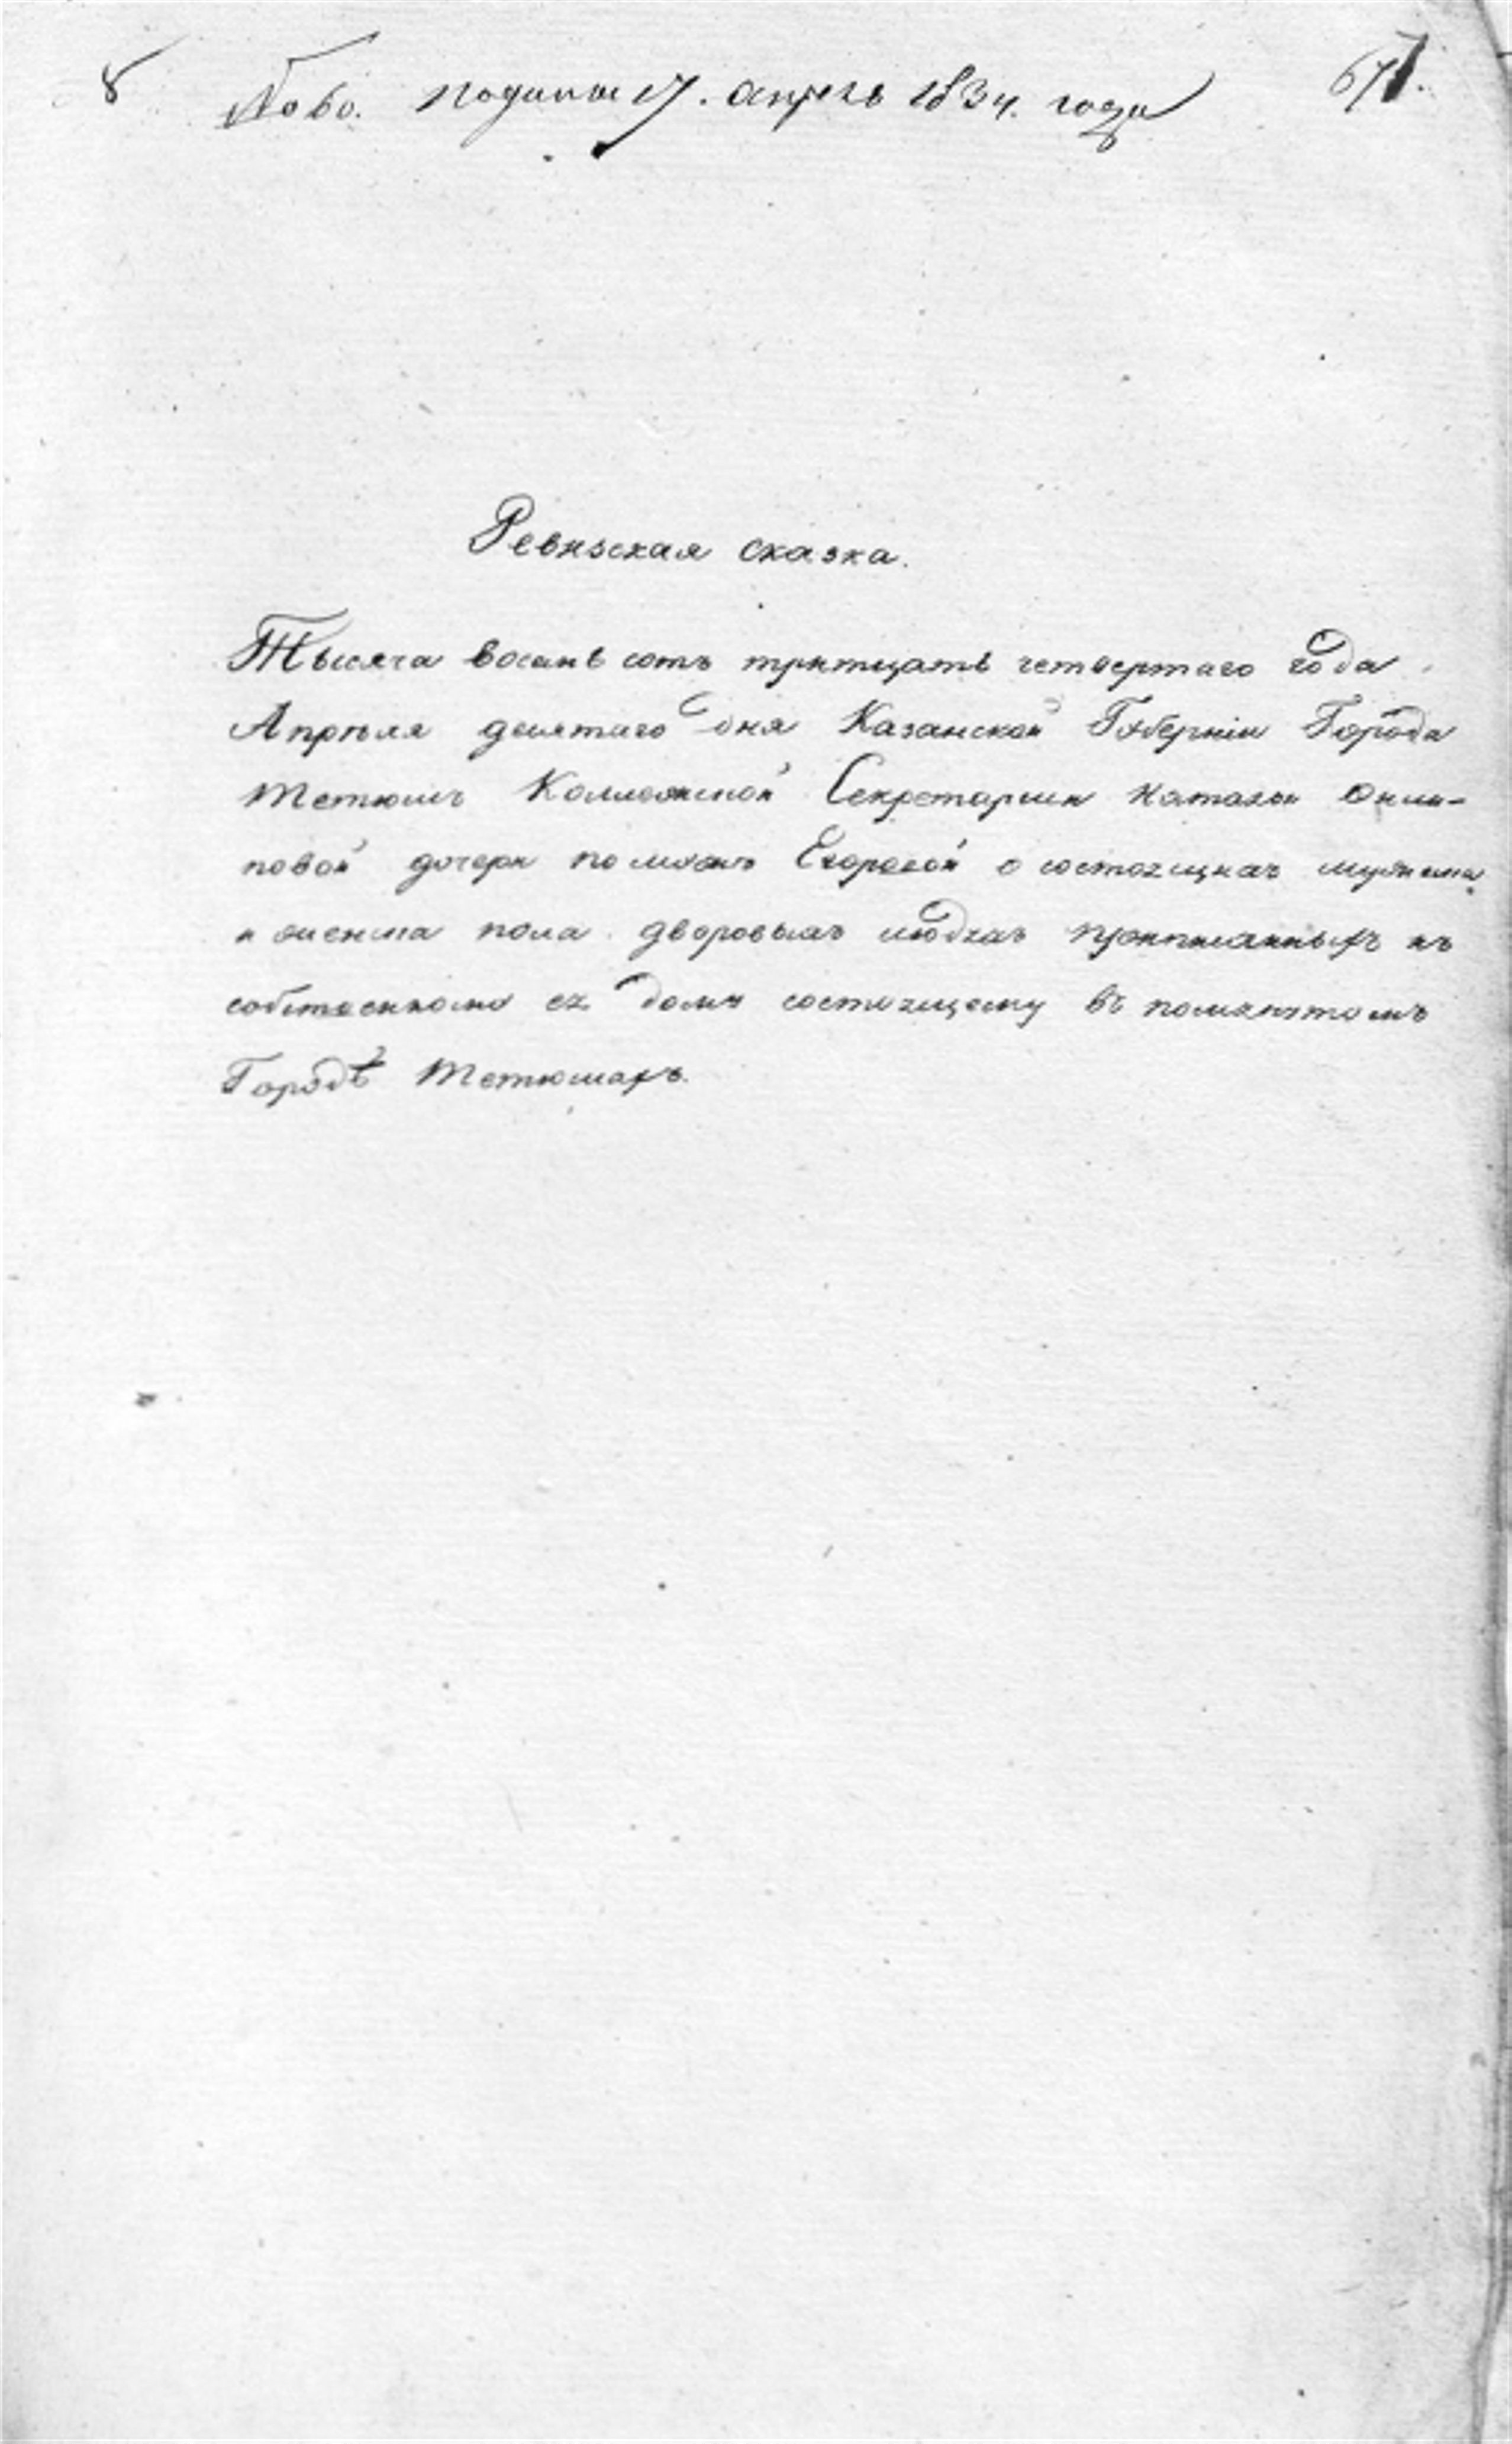 8 Ново. подана 17. апреля 1834. года 671.
Ревизская сказка.
Тысяча восемь сотъ тритцать четвертаго года
Апрѣля десятаго дня Казанской Губерніи Города
Тетюшъ Коллежской Секретарши Натальи
дочери по мужѣ Егоровой о состоящихъ мужеска
и женска пола дворовыхъ людяхъ приписанныхъ къ
собственному ея дому состоящему въ помянутомъ
Городѣ Тетюшахъ.